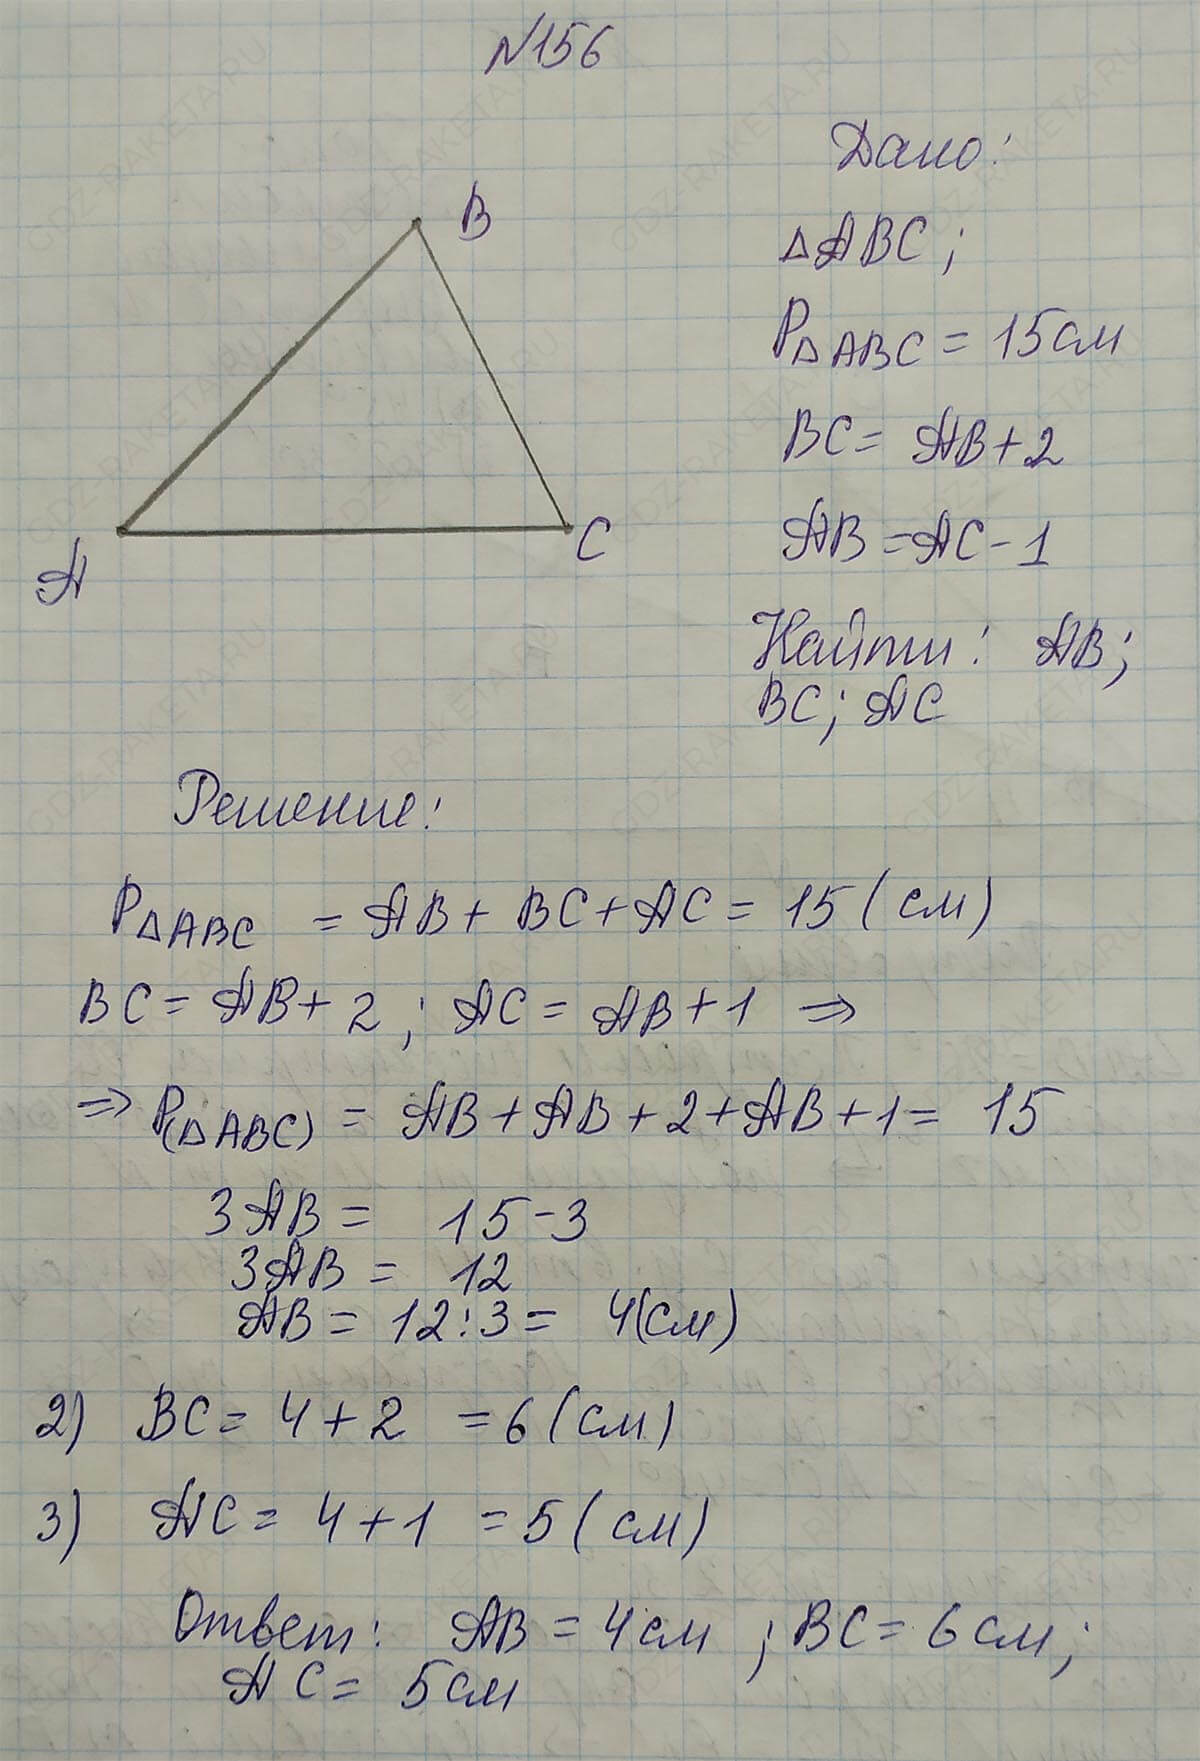 №156
B
A
C
Дано:
△ABC;
P△ABC = 15см
BC = AB+2
AB = AC-1
Найти: AB;
BC; AC
Решение:
P△ABC = AB + BC + AC = 15 (см)
BC = AB + 2; AC = AB + 1 ⇒
⇒ P(△ABC) = AB + AB + 2 + AB + 1 = 15
3AB = 15-3
3AB = 12
AB = 12:3 = 4(см)
2) BC = 4 + 2 = 6 (см)
3) AC = 4 + 1 = 5 (см)
Ответ: AB = 4 см ; BC = 6 см;
AC = 5 см
GDZ-RAKETA.RU